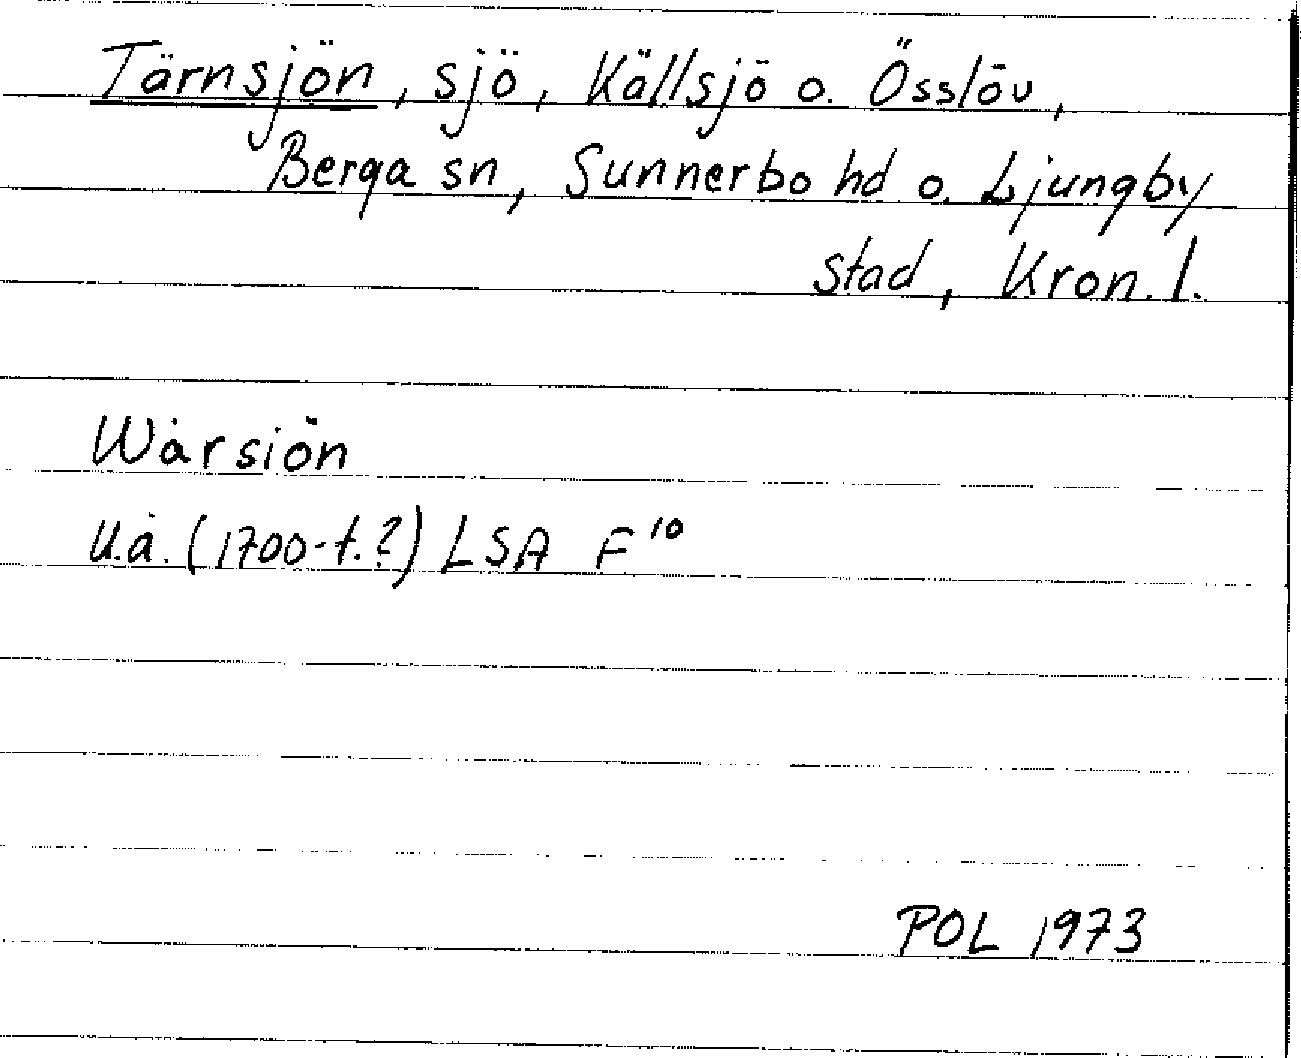 Tärnsjön, sjö, Källsjö o. Össlöv,
Berga sn, Sunnerbo hd o. Ljungby
stad, Kron. l.
Wårsiön
u.å. (1700-t.?) LSA F¹⁰
POL 1973